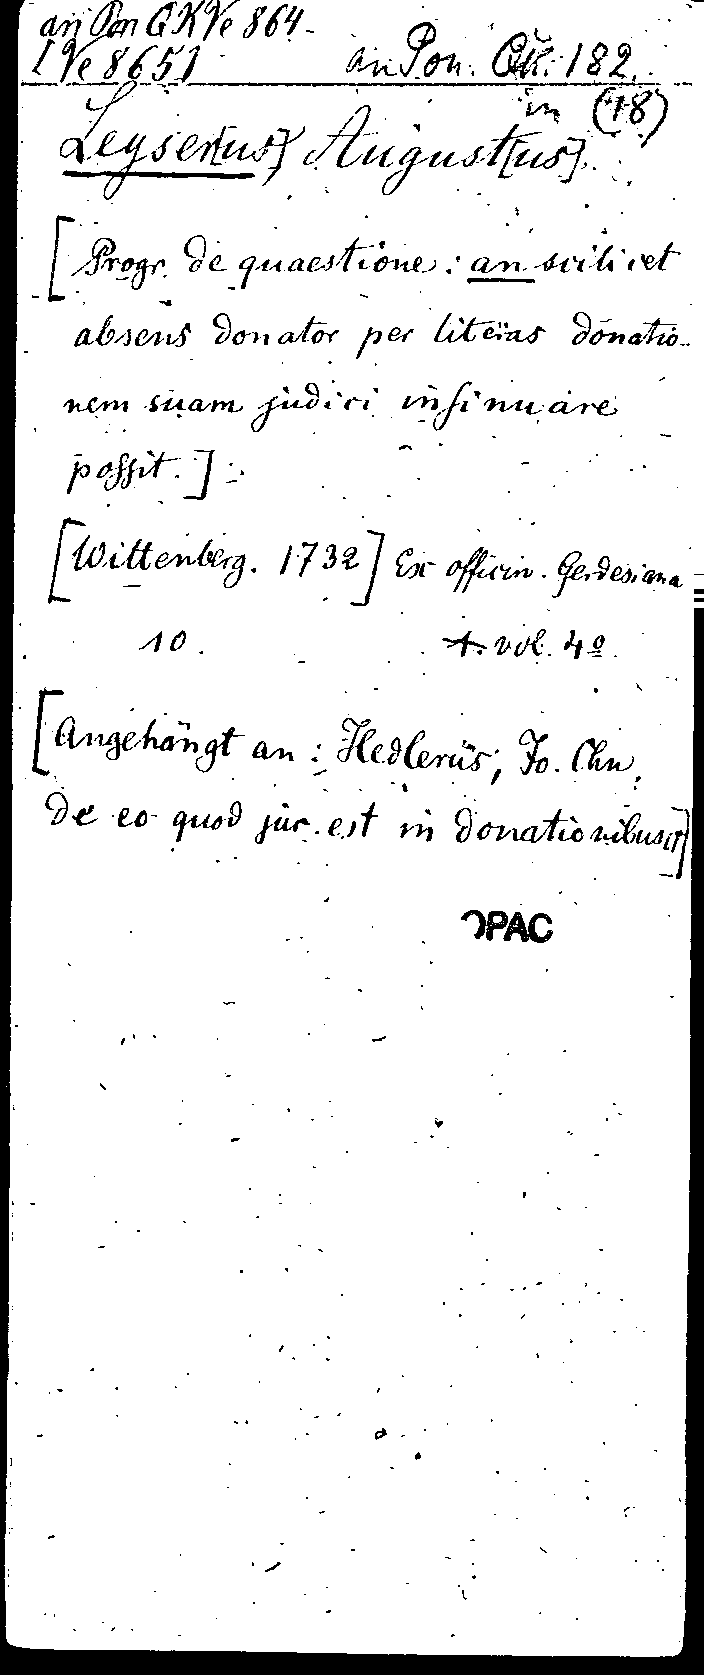 an Pon QK Ve 864
I Ve 8651 an Pon. QK. 182.
in (18)
Leyser[us] August[us].
[Progr. de quaestione: an scilicet
absens donator per literas donatio-
nem suam judici insinuare
possit.]
[Wittenberg. 1732] Ex officin. Gerdesiana
10. 1. vol. 4º
[Angehängt an: Hedlerus, Jo. Chn.
de eo quod jur. est in donationibus]
OPAC